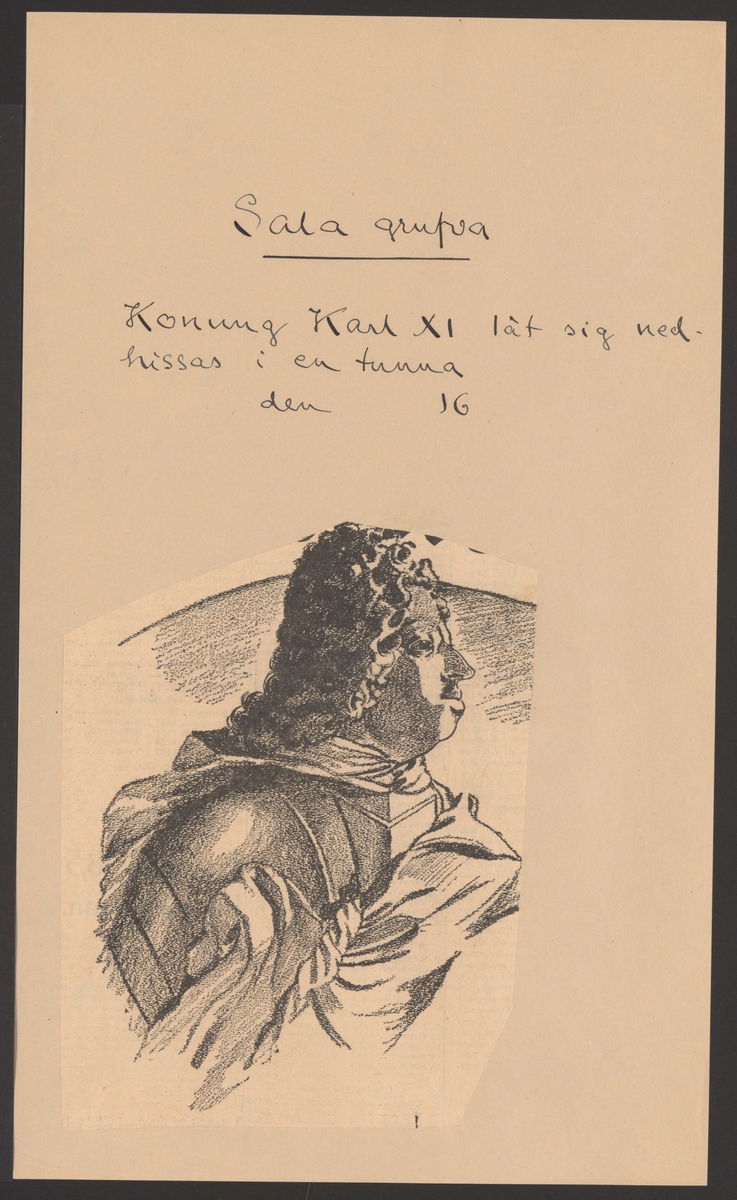 Sala grufva
Konung Karl XI lät sig ned-
hissas i en tunna
den 16